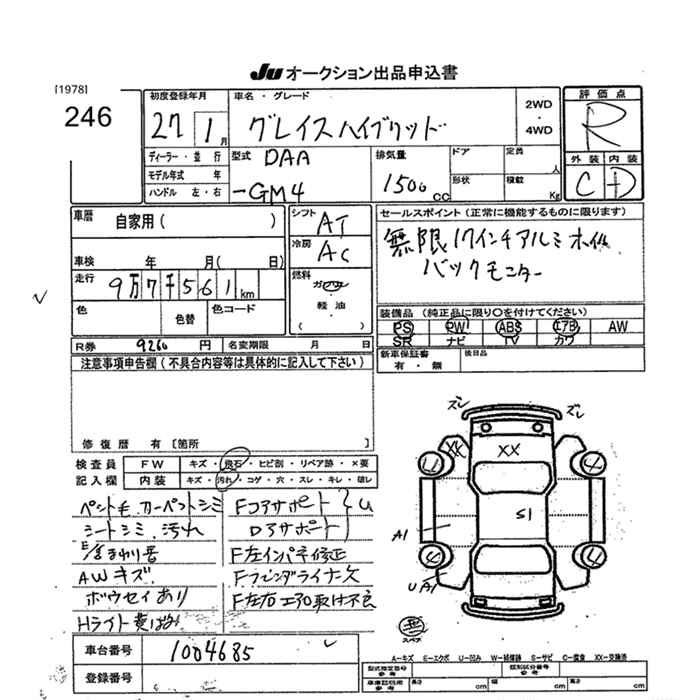 Ju オークション出品申込書
[1978]
246
初度登録年月
27 1月
車名・グレード
グレイスハイブリッド
2WD
・
4WD
評価点
R
外装 内装
C D
ディーラー・並行
モデル年式 年
ハンドル 左・右
型式 DAA
-GM4
排気量
1500 CC
ドア
形状
定員 人
積載 Kg
車歴 自家用( )
車検 年 月( 日)
走行 9万7千561km
色 色替 色コード
シフト AT
冷房 AC
燃料
ガソリン
・
軽油
( )
セールスポイント(正常に機能するものに限ります)
無限17インチアルミホイル
バックモニター
装備品(純正品に限り○を付けてください)
PS PW ABS エアB AW
SR ナビ TV カワ
新車保証書 有・無
後日品
R券 9260円 名変期限 月 日
注意事項申告欄(不具合内容等は具体的に記入して下さい)
修復歴 有[箇所 ]
検査員
記入欄
FW キズ・飛石・ヒビ割・リペア跡・×要
内装 キズ・汚れ・コゲ・穴・スレ・キレ・破レ
ペット毛 カーペットシミ
シートシミ、汚れ
AWキズ
ボウセイあり
Hライト黄ばみ
Fコアサポート
ロアサポート
F左インパネ修正
Fフェンダライナー欠
F左右エアロ取付不良
車台番号 1004685
登録番号
ズレ ズレ
XX XX
S1
A1
U A1
スペア
A-キズ E-エクボ U-凹み W-補修跡 S-サビ C-腐食 XX-交換済
型式指定番号
参考
類別区分番号
参考
車庫証明用
参考
長さ cm 幅 cm 高さ cm